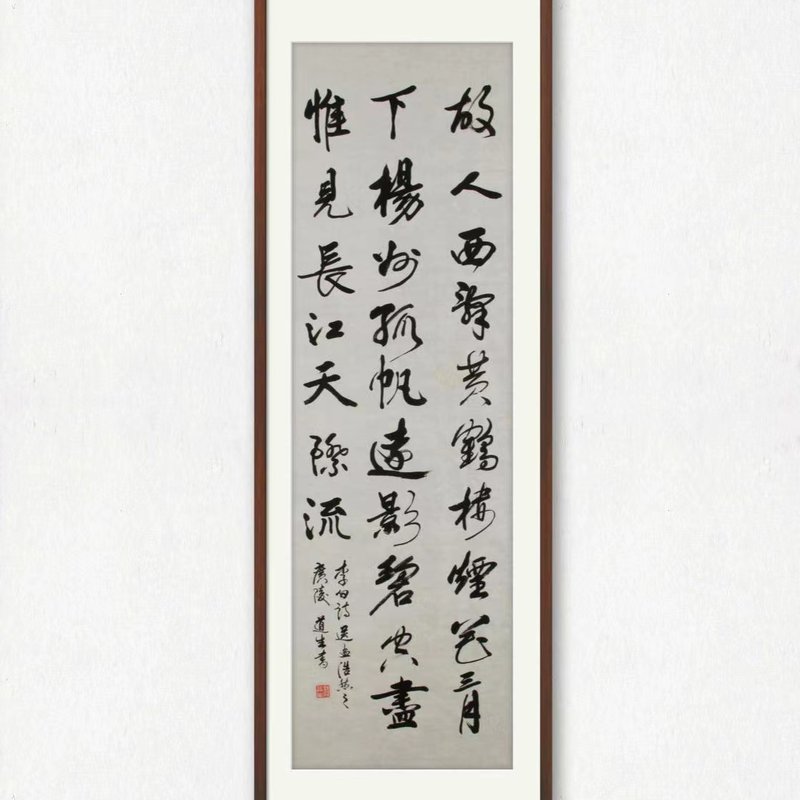 故人西辭黄鶴樓煙花三月
下楊州孤帆遠影碧空盡
惟見長江天際流
李白詩送孟浩然之
廣陵 道生書